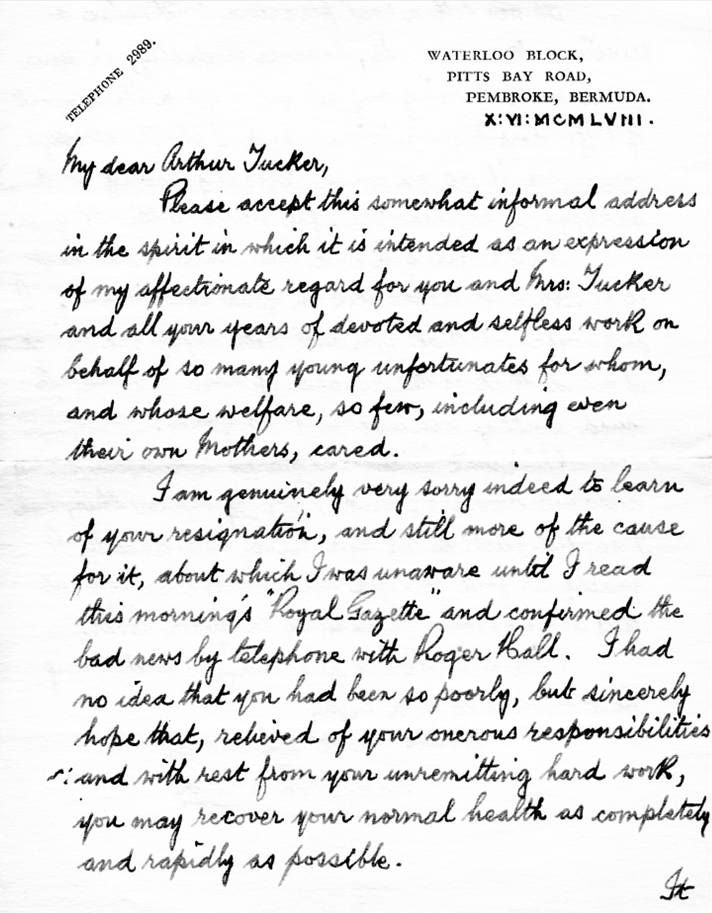 TELEPHONE 2989.
WATERLOO BLOCK,
PITTS BAY ROAD,
PEMBROKE, BERMUDA.
X:VI:MCMLVIII.
My dear Arthur Tucker,
Please accept this somewhat informal address
in the spirit in which it is intended as an expression
of my affectionate regard for you and Mrs: Tucker
and all your years of devoted and selfless work on
behalf of so many young unfortunates for whom,
and whose welfare, so few, including even
their own Mothers, cared.
I am genuinely very sorry indeed to learn
of your resignation, and still more of the cause
for it, about which I was unaware until I read
this morning's "Royal Gazette" and confirmed the
bad news by telephone with Roger Hall. I had
no idea that you had been so poorly, but sincerely
hope that, relieved of your onerous responsibilities
and with rest from your unremitting hard work,
you may recover your normal health as completely
and rapidly as possible.
It